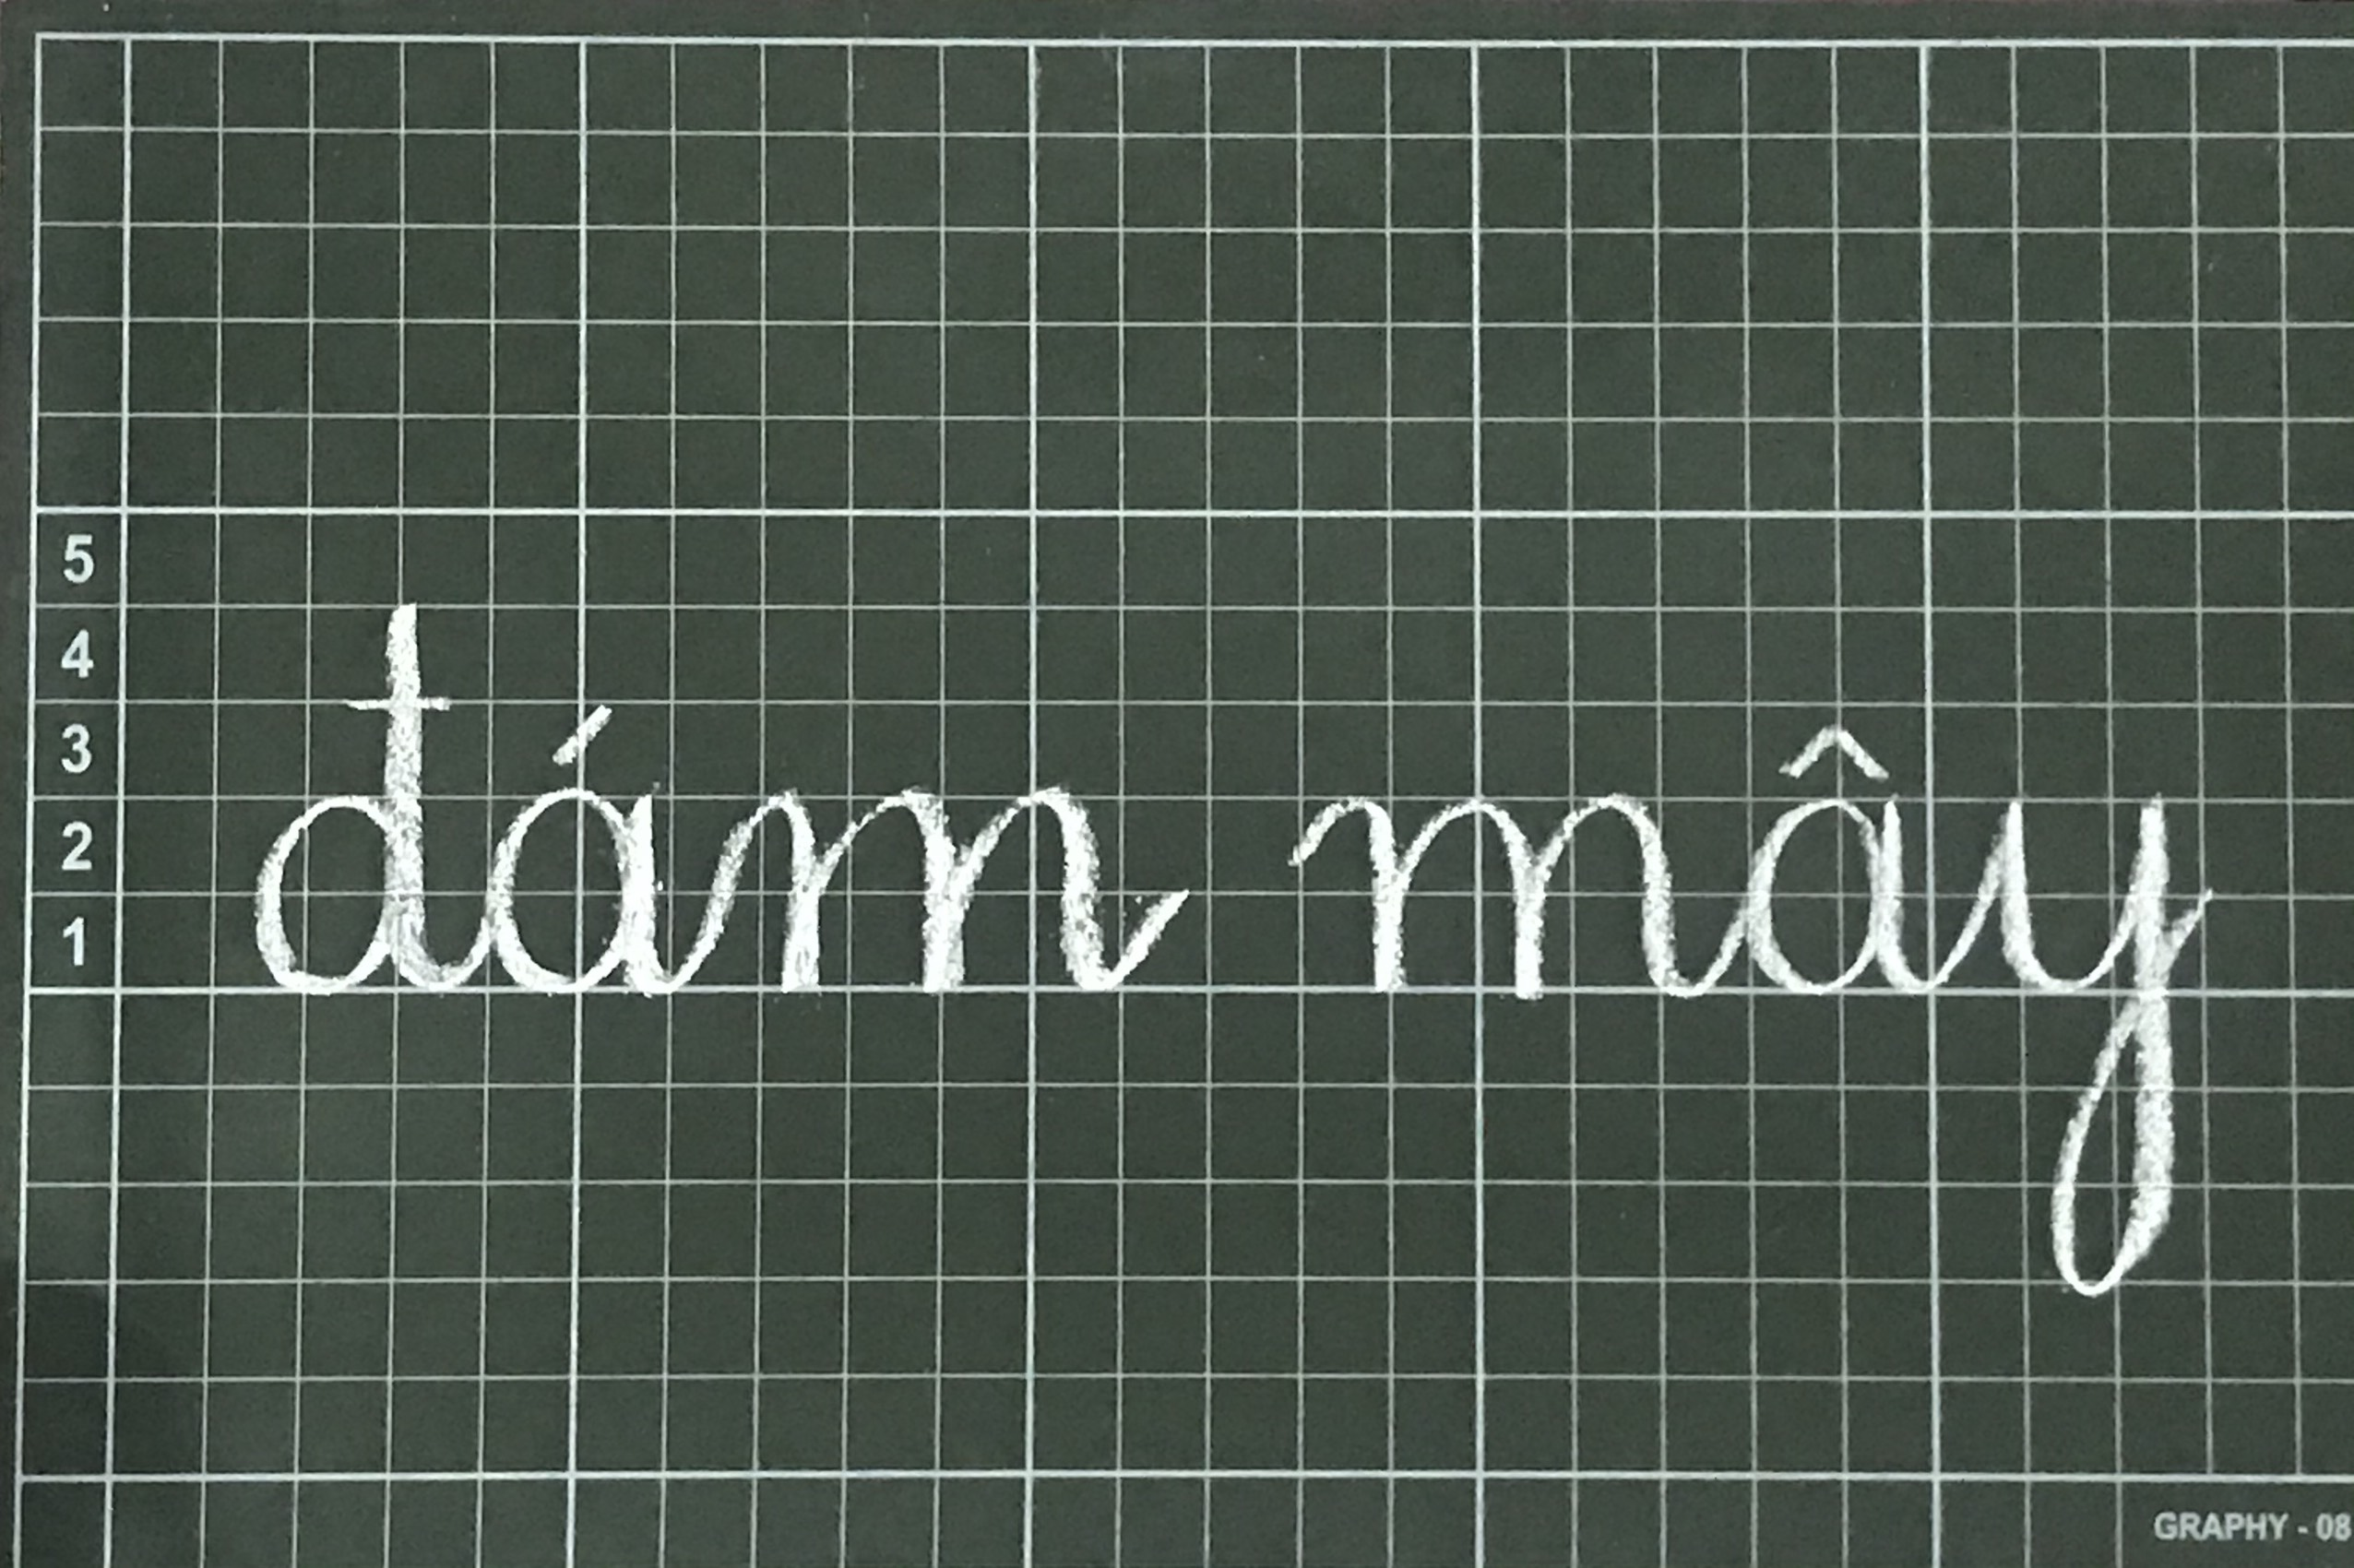 5
4
3
2
1
đám mây
GRAPHY - 08